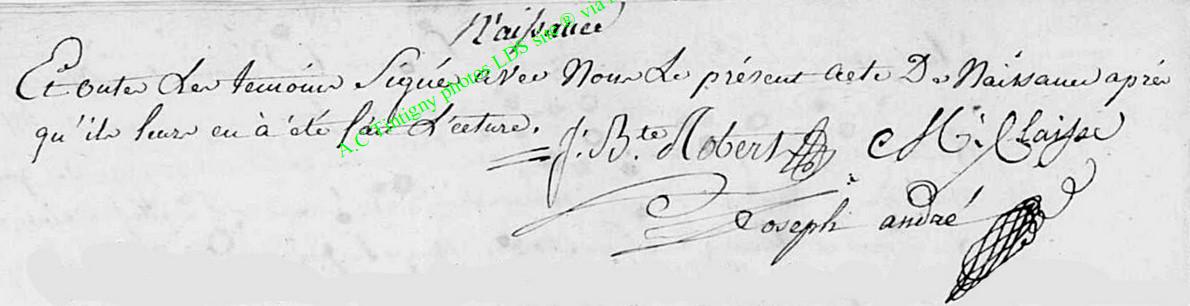 Naissance
Et ontes Les temoins Signés avec Nous Le présent acte De Naissance aprés
qu'ils leurs en à été fait L'ecture.
J. B.te Robert M. Claisse
Joseph andré
A.C photes LDS site® via